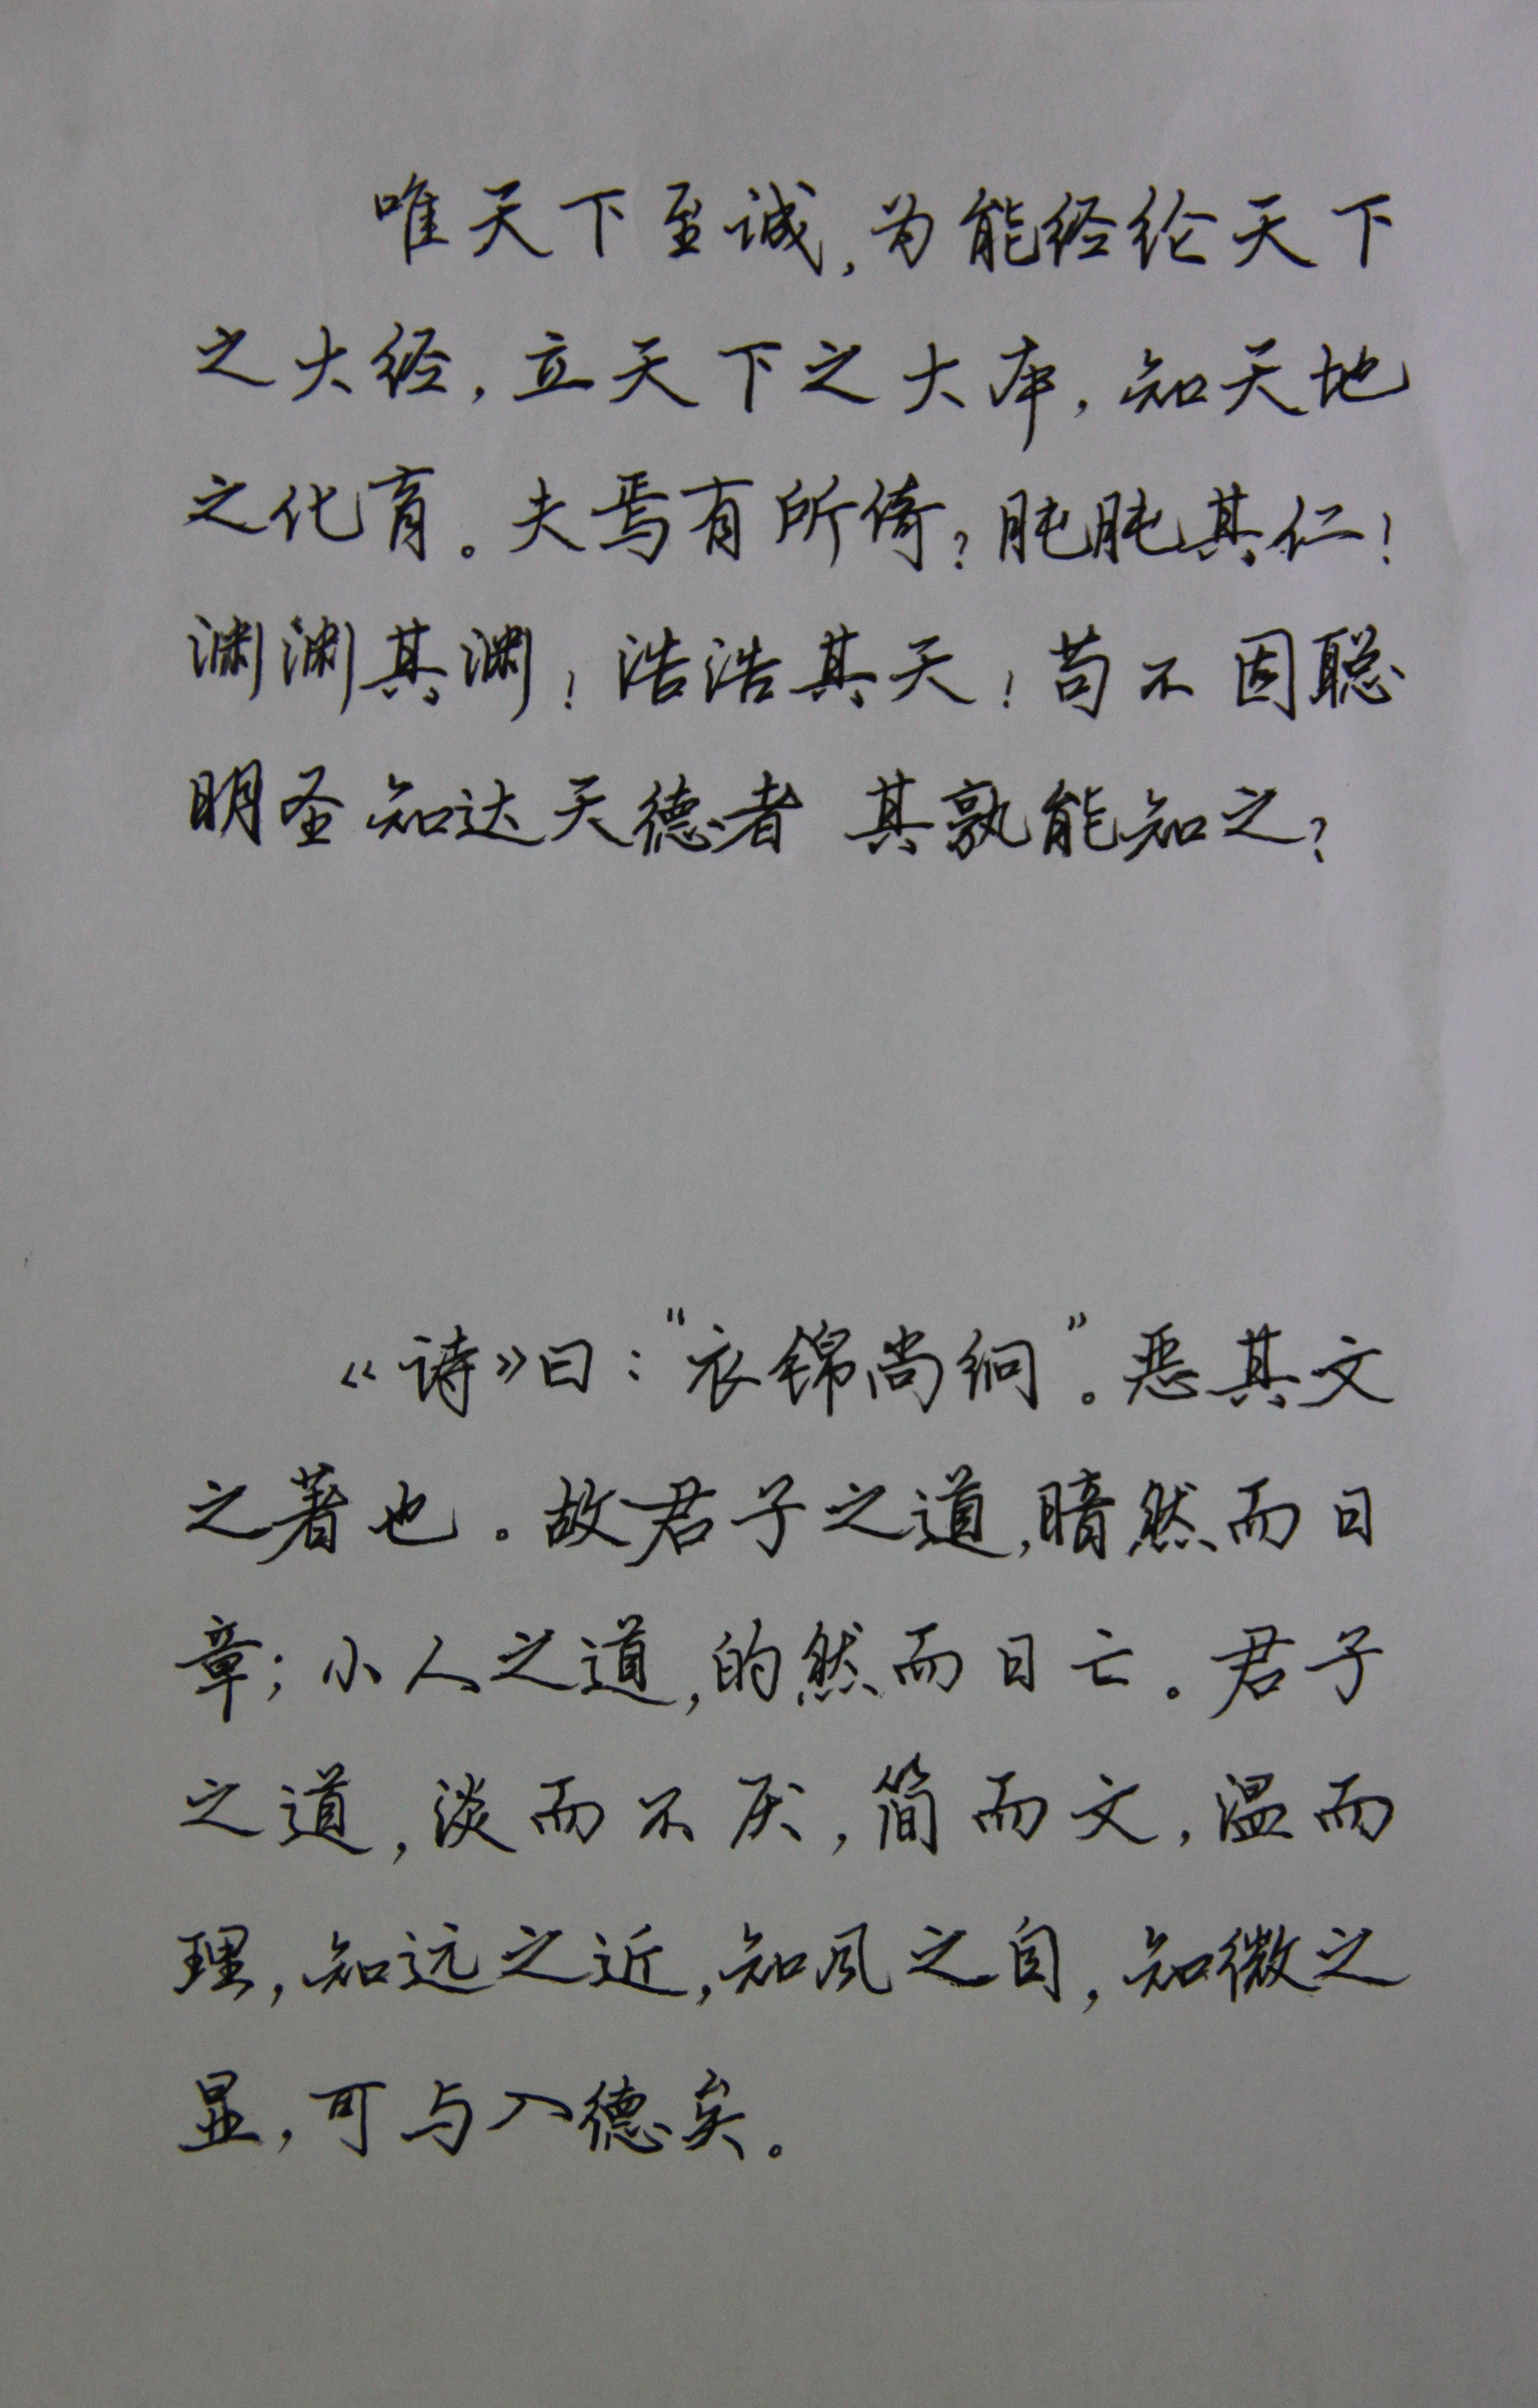 唯天下至诚,为能经纶天下
之大经,立天下之大本,知天地
之化育。夫焉有所倚?肫肫其仁!
渊渊其渊!浩浩其天!苟不固聪
明圣知达天德者 其孰能知之?
《诗》曰:“衣锦尚絅”。恶其文
之著也。故君子之道,暗然而日
章;小人之道,的然而日亡。君子
之道,淡而不厌,简而文,温而
理,知远之近,知风之自,知微之
显,可与入德矣。